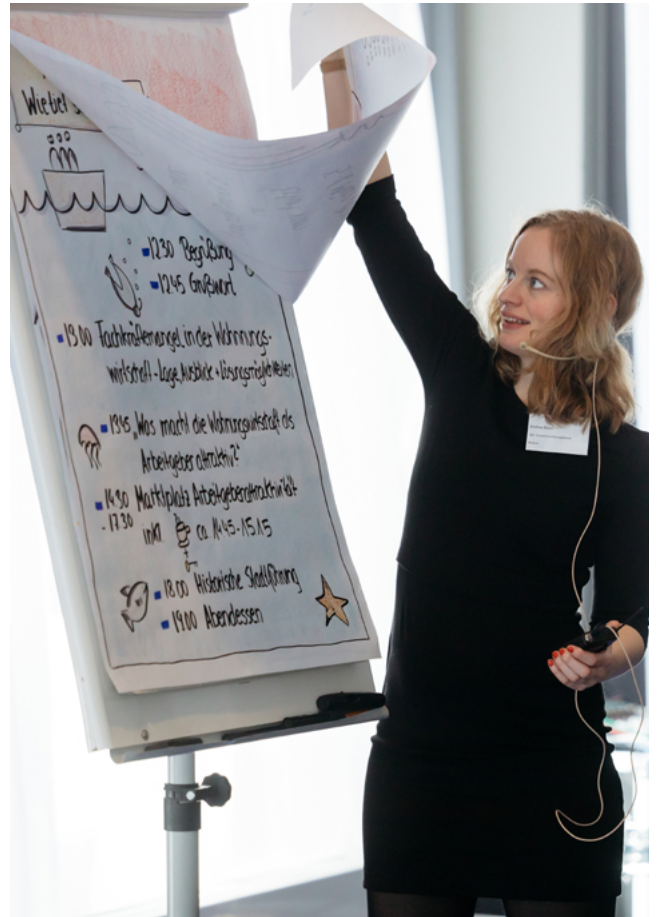 Wie tief
12.30 Begrüßung
12.45 Grußwort
13.00 Fachkräftemangel in der Wohnungs-
wirtschaft - Lage, Ausblick + Lösungsmöglichkeiten
13.45 „Was macht die Wohnungswirtschaft als
Arbeitgeber attraktiv?"
14.30 Marktplatz Arbeitgeberattraktivität
- 17.30 inkl. ca. 14.45-15.15
18.00 Historische Stadtführung
19.00 Abendessen